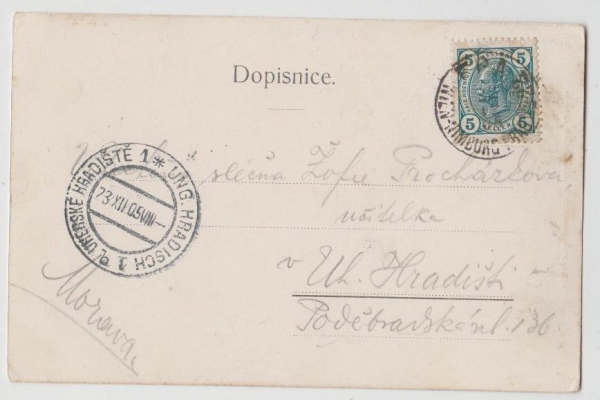 Dopisnice.
5 5
5 5
UHERSKÉ HRADIŠTĚ 1 * UNG. HRADISCH 1
23 XII 05 VIII
slečna Žofie Procházkova,
učitelka
v Uh. Hradišti
Poděbradské ul. 136.
Morava